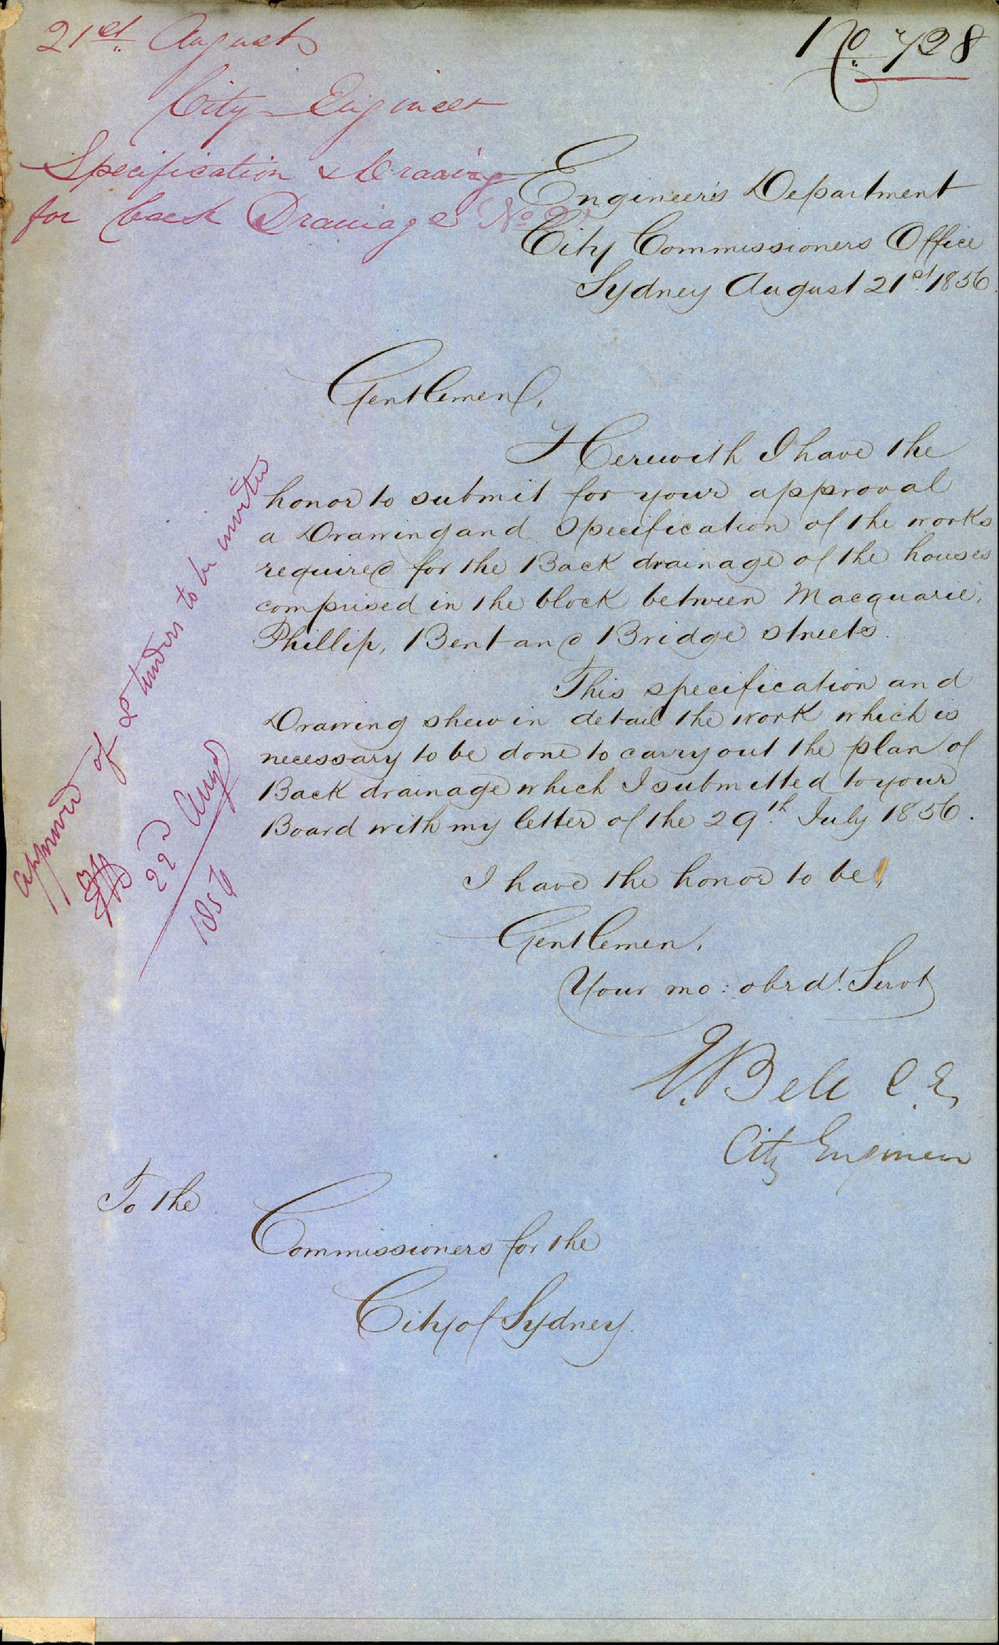 No. 728
21st. August
City Engineer
Specification & Drawing
for back Drainage No 2
Engineer's Department
City Commissioners Office
Sydney August 21st. 1856.
Gentlemen,
Herewith I have the
honor to submit for your approval
a Drawing and Specification of the works
required for the Back drainage of the houses
comprised in the block between Macquarie,
Phillip, Bent and Bridge streets.
This specification and
Drawing shew in detail the work which is
necessary to be done to carry out the plan of
Back drainage which I submitted to your
Board with my letter of the 29th. July 1856.
approved of & tenders to be invited
22d Augt
1856
I have the honor to be,
Gentlemen,
Your mo: obedt. Servt
Bell C.E.
City Engineer
To the
Commissioners for the
City of Sydney.